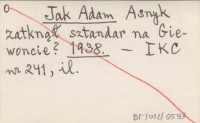 Jak Adam Asnyk
zatknął sztandar na Gie-
woncie? 1938. – IKC
nr 241, il.